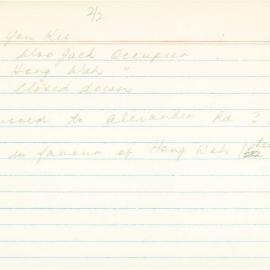 2/2
Yan Kee.
Woo Jack Occupier
Hong Wah "
Closed down
to Alexandra Rd ?
in favour of Hong Wah (